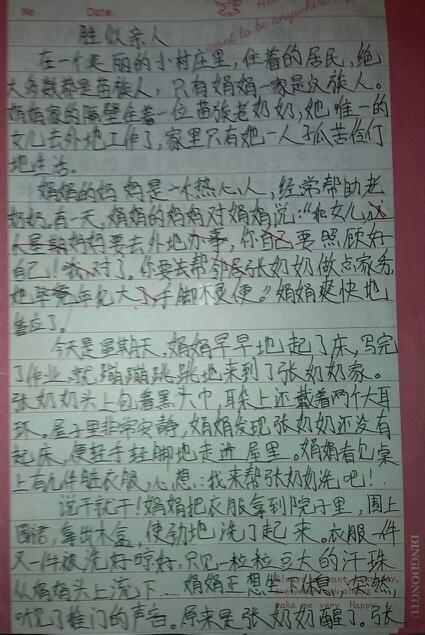 No.
Date.
胜似亲人
在一个美丽的小村庄里，住着的居民，绝
大多数都是苗族人，只有娟娟一家是汉族人。
娟娟家的隔壁住着一位苗族老奶奶，她唯一的
女儿去外地工作了，家里只有她一人孤苦伶仃
地生活。
娟娟的妈妈是个热心人，经常帮助老
奶奶。有一天，娟娟的妈妈对娟娟说：“
妈妈要去外地办事，你自己要照顾好
自己！哦，对了。你要去帮邻居张奶奶做点家务，
她毕竟年纪大了手脚不灵便。”娟娟爽快地
答应了。
今天是星期天，娟娟早早地起了床，写完
了作业，就蹦蹦跳跳地来到了张奶奶家。
张奶奶头上包着黑头巾，耳朵上还戴着两个大耳
环。屋子里非常安静，娟娟发现张奶奶还没有
起床，便轻手轻脚地走进屋里。娟娟看见桌
上有几件脏衣服，心想：我来帮张奶奶洗吧！
说干就干！娟娟把衣服拿到院子里，围上
围裙，拿出木盆，使劲地洗了起来。衣服一件
又一件被洗好晾好，只见一粒粒豆大的汗珠
从娟娟头上流下……娟娟正想坐下休息，突然，
听见了推门的声音。原来是张奶奶醒了。张
make me very Happy
DINGDONGTU